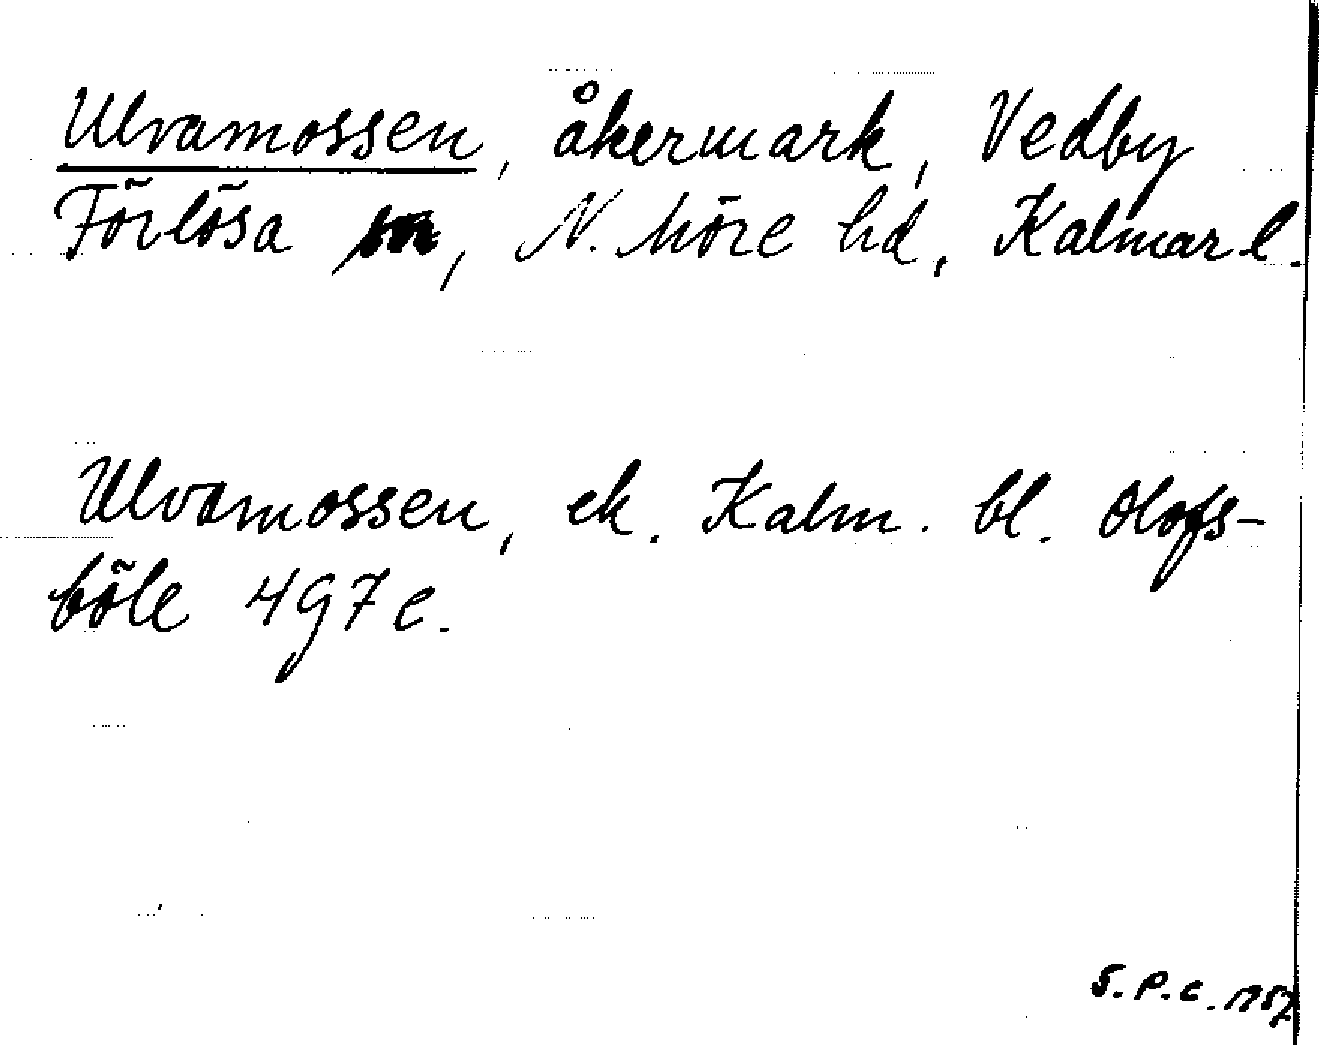 Ulvamossen, åkermark, Vedby
Förlösa sn, N. Möre hd, Kalmar l.
Ulvamossen, ek. Kalm. bl. Olofs-
böle 4g7e.
S.P.C. 1957